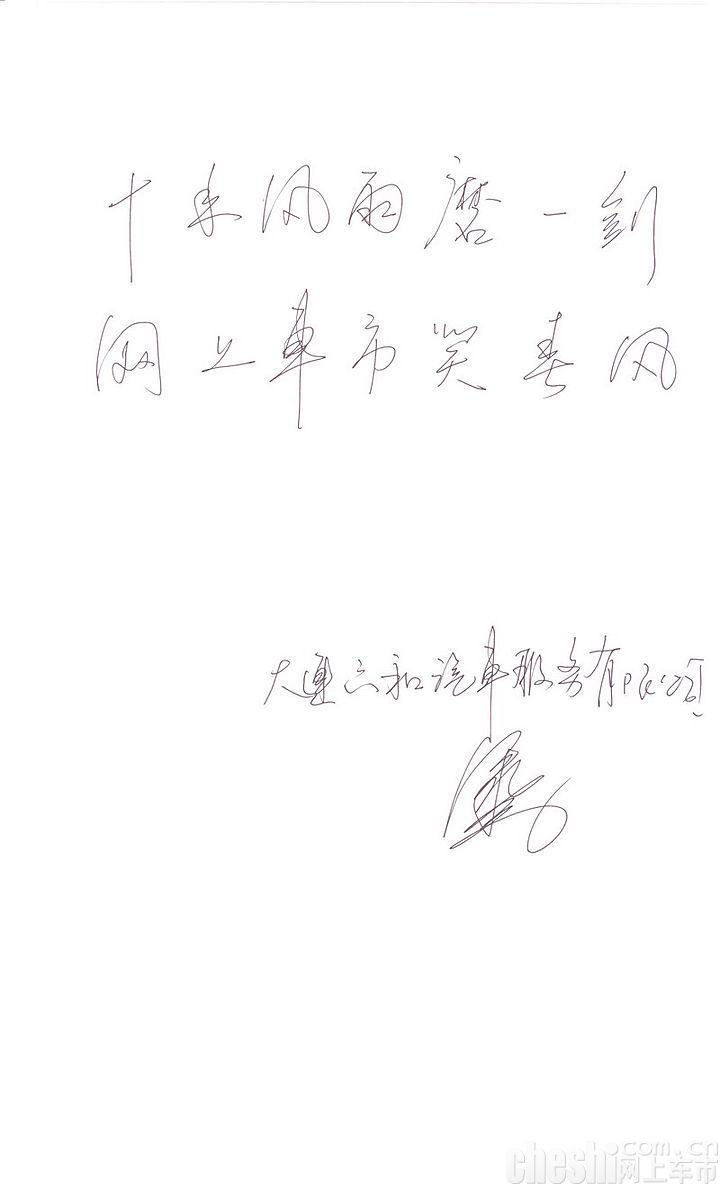 十年风雨磨一剑
网上車市笑春风
大連六和汽車服务有限公司
cheshi.com.cn
网上车市